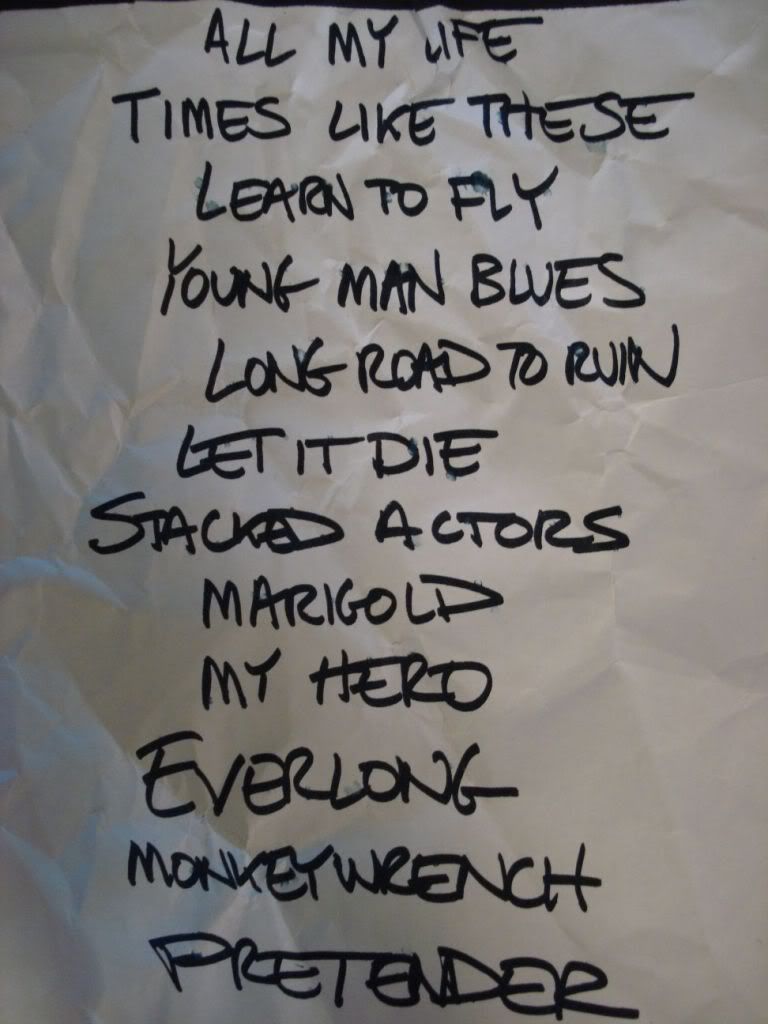 ALL MY LIFE
TIMES LIKE THESE
LEARN TO FLY
YOUNG MAN BLUES
LONG ROAD TO RUIN
LET IT DIE
STACKED ACTORS
MARIGOLD
MY HERO
EVERLONG
MONKEYWRENCH
PRETENDER